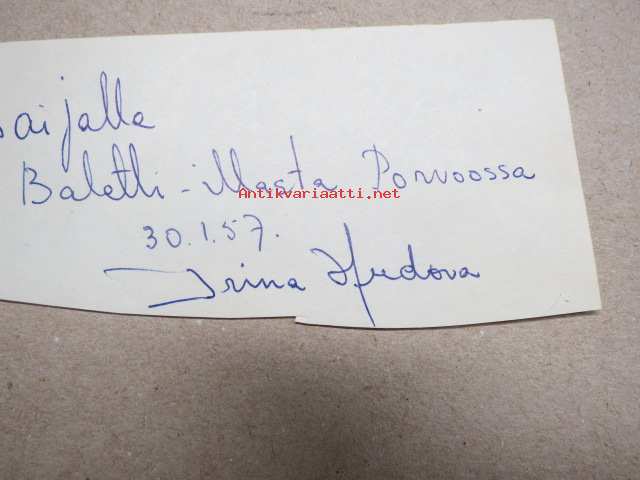 aijalle
Baletti-illasta Porvoossa
Antikvariaatti.net
30.1.57.
Irina Hudova